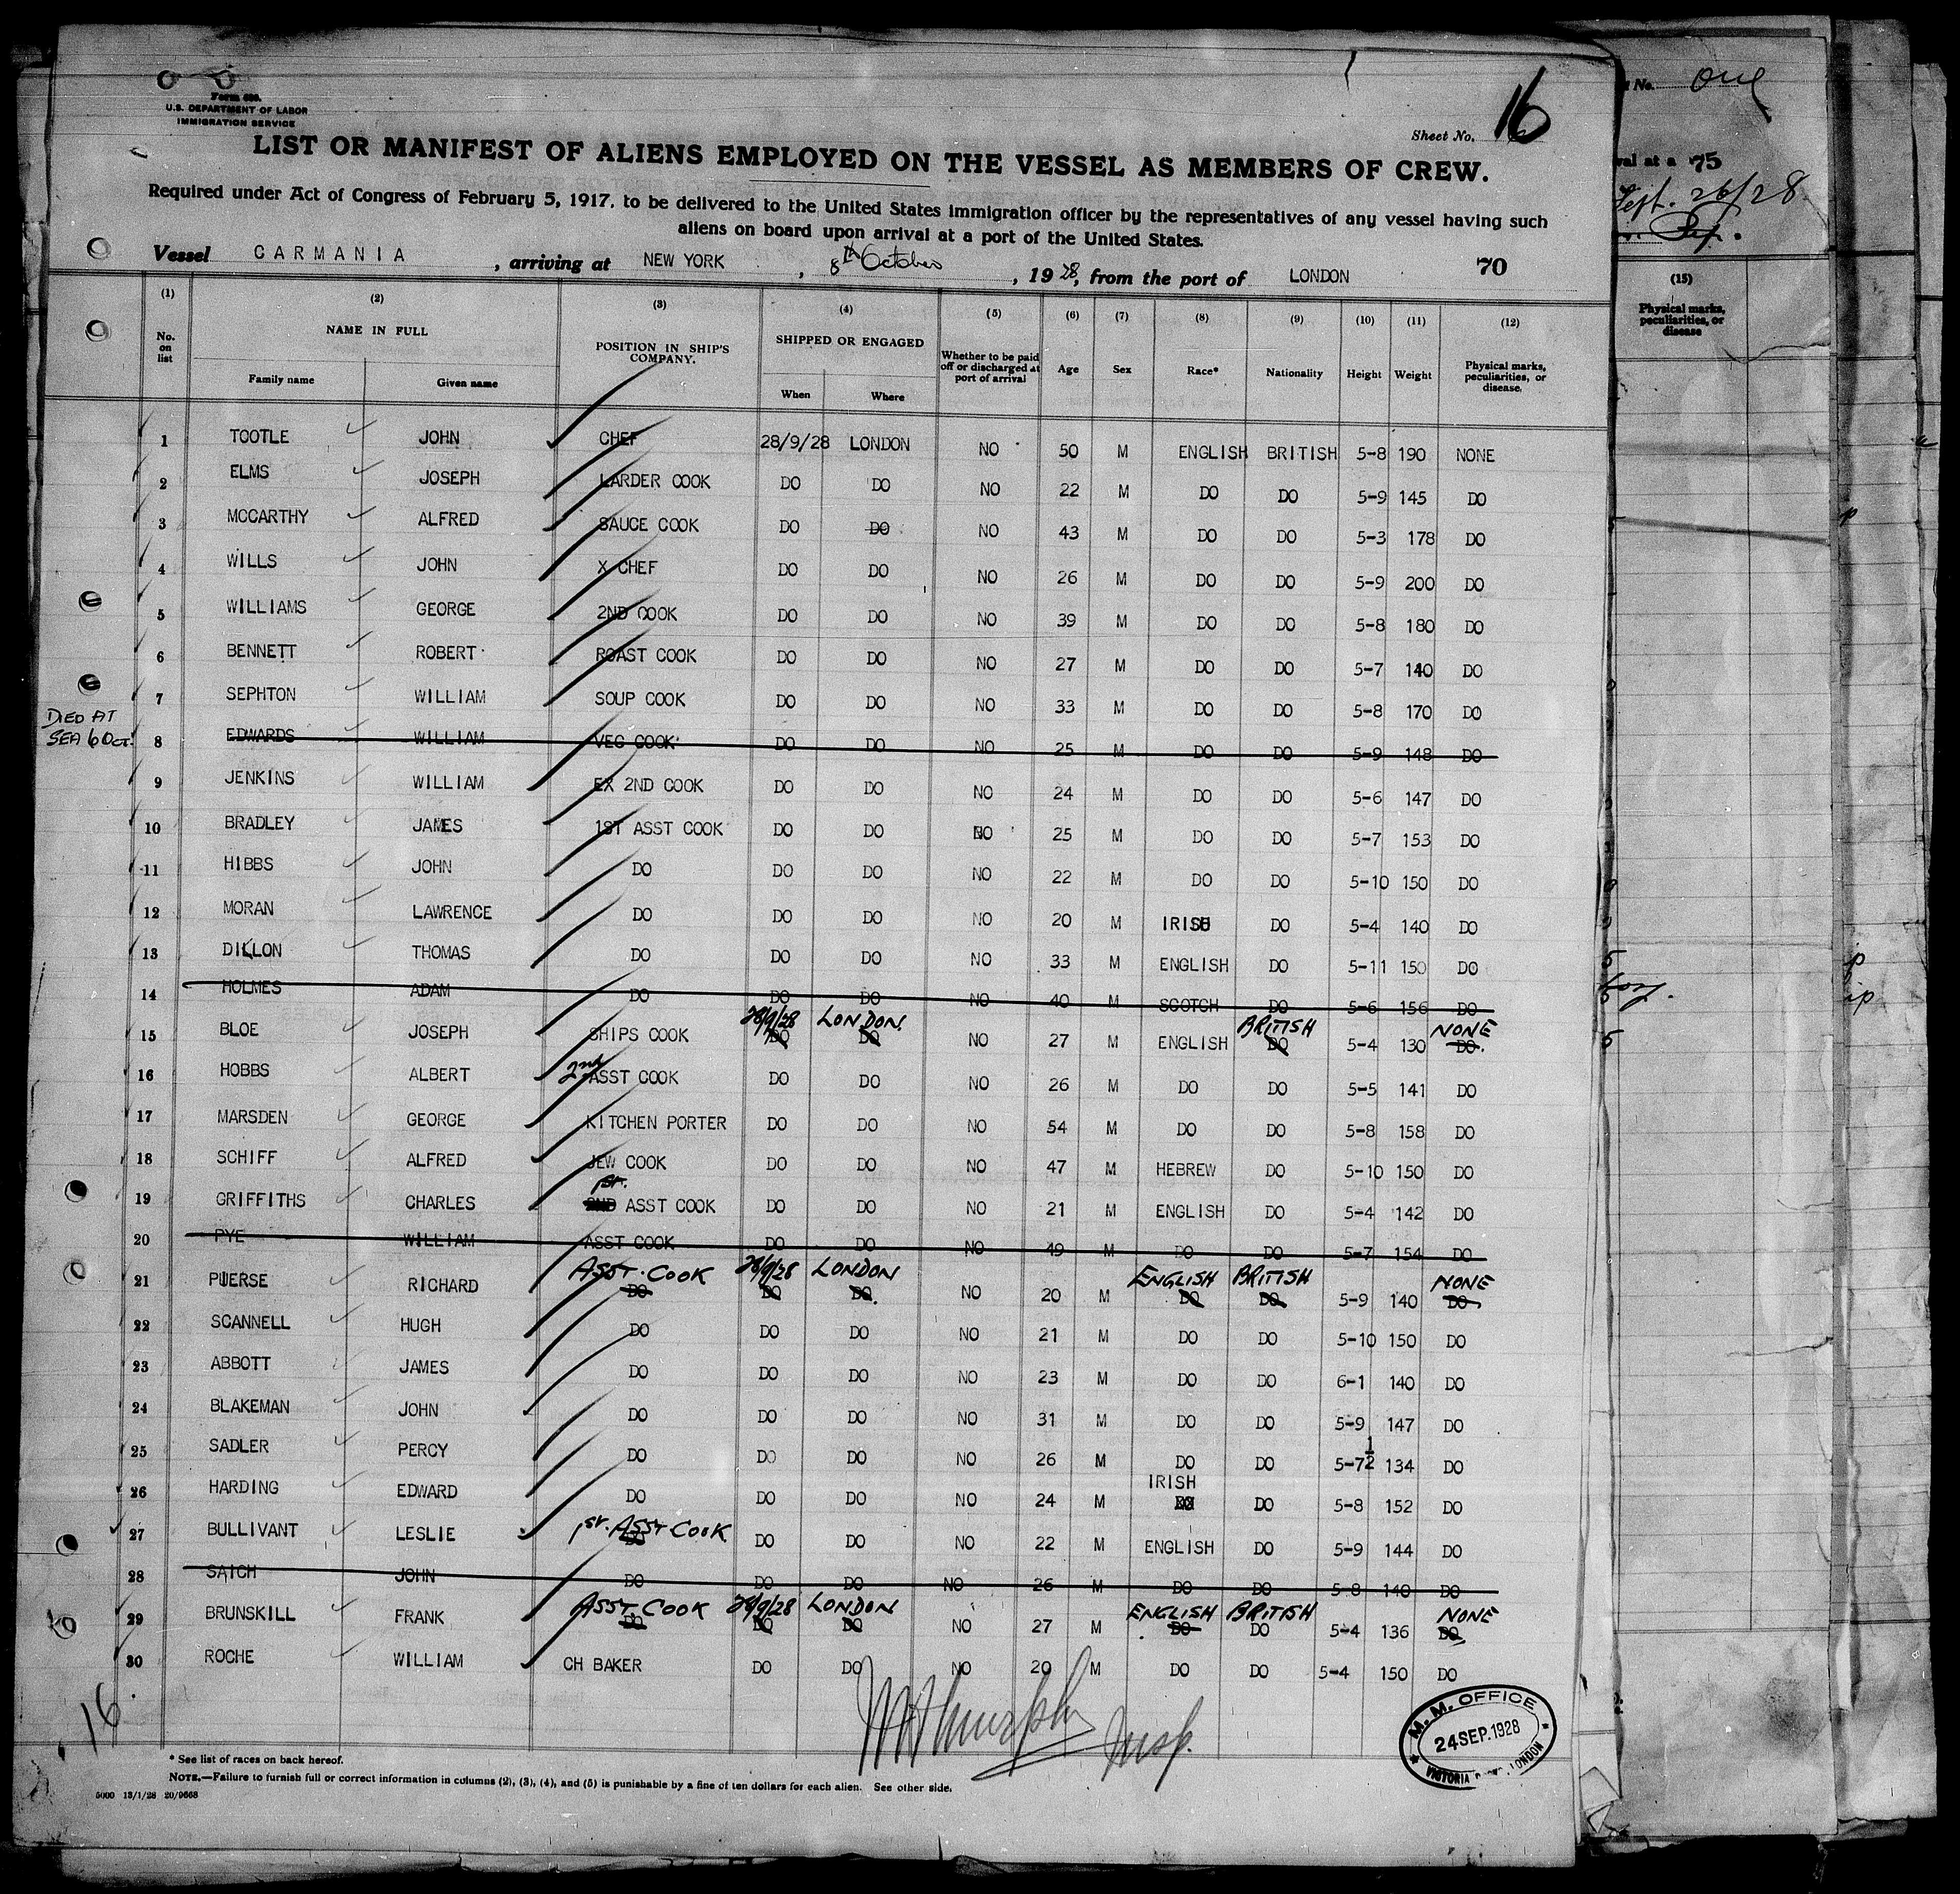 Form 689.
U.S. DEPARTMENT OF LABOR
IMMIGRATION SERVICE
Sheet No. 16
LIST OR MANIFEST OF ALIENS EMPLOYED ON THE VESSEL AS MEMBERS OF CREW.
Required under Act of Congress of February 5, 1917, to be delivered to the United States immigration officer by the representatives of any vessel having such
aliens on board upon arrival at a port of the United States.
Vessel CARMANIA, arriving at NEW YORK, 8th October, 1928, from the port of LONDON 70
(1) (2) (3) (4) (5) (6) (7) (8) (9) (10) (11) (12)
No. on list NAME IN FULL Family name Given name POSITION IN SHIP'S COMPANY. SHIPPED OR ENGAGED When Where Whether to be paid off or discharged at port of arrival Age Sex Race* Nationality Height Weight Physical marks, peculiarities, or disease.
1 TOOTLE JOHN CHEF 28/9/28 LONDON NO 50 M ENGLISH BRITISH 5-8 190 NONE
2 ELMS JOSEPH LARDER COOK DO DO NO 22 M DO DO 5-9 145 DO
3 MCCARTHY ALFRED SAUCE COOK DO DO NO 43 M DO DO 5-3 178 DO
4 WILLS JOHN X CHEF DO DO NO 26 M DO DO 5-9 200 DO
5 WILLIAMS GEORGE 2ND COOK DO DO NO 39 M DO DO 5-8 180 DO
6 BENNETT ROBERT ROAST COOK DO DO NO 27 M DO DO 5-7 140 DO
7 SEPHTON WILLIAM SOUP COOK DO DO NO 33 M DO DO 5-8 170 DO
DIED AT
SEA 6 OCT.
8 EDWARDS WILLIAM VEG COOK DO DO NO 25 M DO DO 5-9 148 DO
9 JENKINS WILLIAM EX 2ND COOK DO DO NO 24 M DO DO 5-6 147 DO
10 BRADLEY JAMES 1ST ASST COOK DO DO NO 25 M DO DO 5-7 153 DO
11 HIBBS JOHN DO DO DO NO 22 M DO DO 5-10 150 DO
12 MORAN LAWRENCE DO DO DO NO 20 M IRISH DO 5-4 140 DO
13 DILLON THOMAS DO DO DO NO 33 M ENGLISH DO 5-11 150 DO
14 HOLMES ADAM DO DO DO NO 40 M SCOTCH DO 5-6 156 DO
28/9/28 LONDON. BRITISH NONE
15 BLOE JOSEPH SHIPS COOK DO DO NO 27 M ENGLISH DO 5-4 130 DO.
16 HOBBS ALBERT 2nd ASST COOK DO DO NO 26 M DO DO 5-5 141 DO
17 MARSDEN GEORGE KITCHEN PORTER DO DO NO 54 M DO DO 5-8 158 DO
18 SCHIFF ALFRED JEW COOK DO DO NO 47 M HEBREW DO 5-10 150 DO
1st.
19 GRIFFITHS CHARLES 2ND ASST COOK DO DO NO 21 M ENGLISH DO 5-4 142 DO
20 PYE WILLIAM ASST COOK DO DO NO 49 M DO DO 5-7 154 DO
ASST. COOK 28/9/28 LONDON ENGLISH BRITISH NONE
21 PUERSE RICHARD DO DO DO NO 20 M DO DO 5-9 140 DO
22 SCANNELL HUGH DO DO DO NO 21 M DO DO 5-10 150 DO
23 ABBOTT JAMES DO DO DO NO 23 M DO DO 6-1 140 DO
24 BLAKEMAN JOHN DO DO DO NO 31 M DO DO 5-9 147 DO
25 SADLER PERCY DO DO DO NO 26 M DO DO 5-7½ 134 DO
IRISH
26 HARDING EDWARD DO DO DO NO 24 M DO DO 5-8 152 DO
1st. ASST COOK
27 BULLIVANT LESLIE DO DO DO NO 22 M ENGLISH DO 5-9 144 DO
28 SAICH JOHN DO DO DO NO 26 M DO DO 5-8 140 DO
ASST. COOK 28/9/28 LONDON ENGLISH BRITISH NONE
29 BRUNSKILL FRANK DO DO DO NO 27 M DO DO 5-4 136 DO
30 ROCHE WILLIAM CH BAKER DO DO NO 20 M DO DO 5-4 150 DO
16
Insp.
M.M. OFFICE
24 SEP. 1928
VICTORIA LONDON
* See list of races on back hereof.
NOTE.—Failure to furnish full or correct information in columns (2), (3), (4), and (5) is punishable by a fine of ten dollars for each alien. See other side.
5000 13/1/28 20/9668
No. one
val at a 75
Sept. 26/28
(15)
Physical marks, peculiarities, or disease